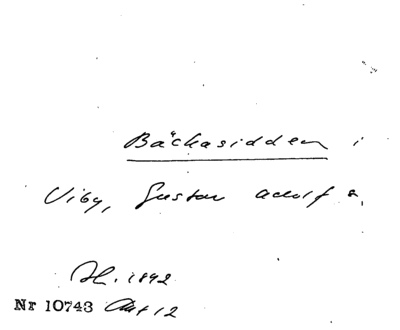 Bäckasidden i
Viby, Gustav Adolf s.
Ht. 1892
Nr 10743 Akt 12